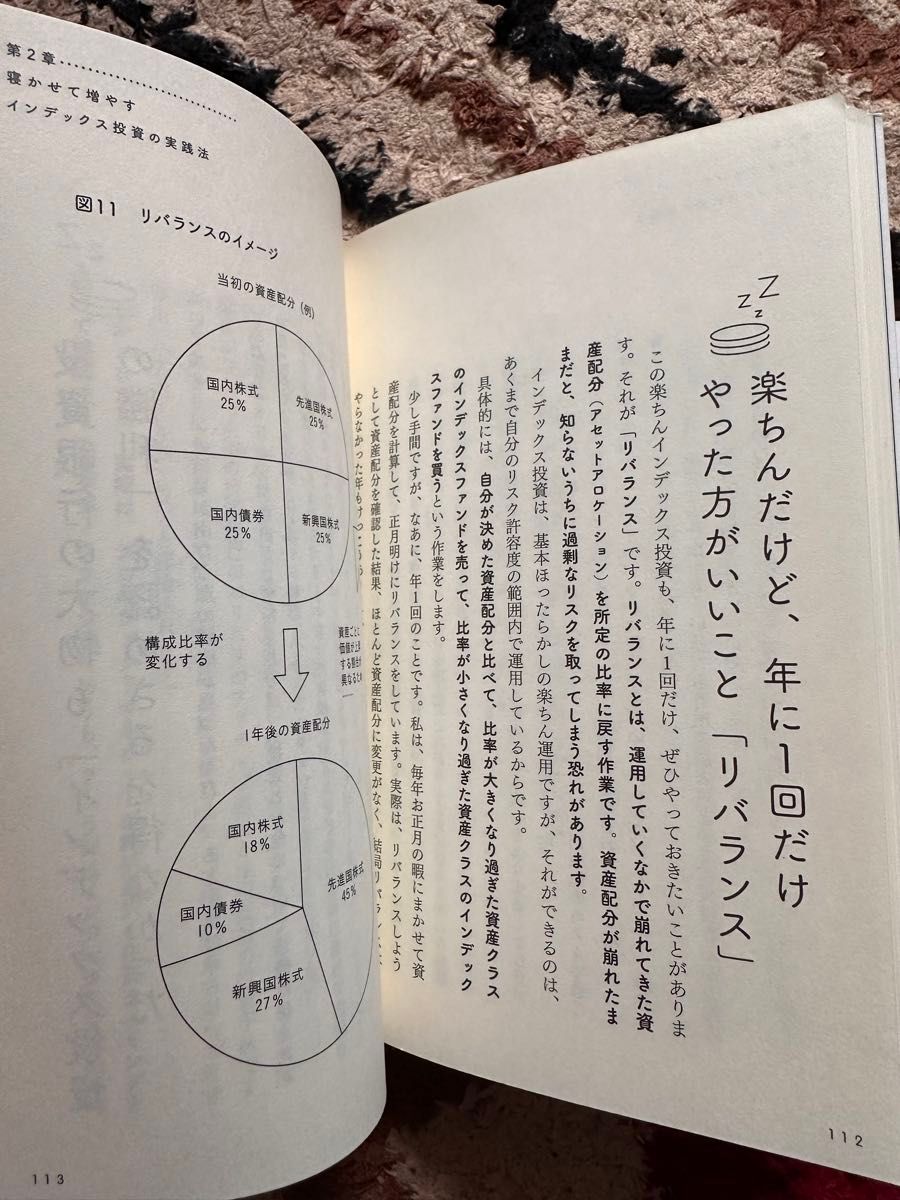 楽ちんだけど、年に1回だけ
やった方がいいこと「リバランス」
この楽ちんインデックス投資も、年に1回だけ、ぜひやっておきたいことがありま
す。それが「リバランス」です。リバランスとは、運用していくなかで崩れてきた資
産配分（アセットアロケーション）を所定の比率に戻す作業です。資産配分が崩れたま
まだと、知らないうちに過剰なリスクを取ってしまう恐れがあります。
インデックス投資は、基本ほったらかしの楽ちん運用ですが、それができるのは、
あくまで自分のリスク許容度の範囲内で運用しているからです。
具体的には、自分が決めた資産配分と比べて、比率が大きくなり過ぎた資産クラス
のインデックスファンドを売って、比率が小さくなり過ぎた資産クラスのインデック
スファンドを買うという作業をします。
少し手間ですが、なあに、年1回のことです。私は、毎年お正月の暇にまかせて資
産配分を計算して、正月明けにリバランスをしています。実際は、リバランスしよう
として資産配分を確認した結果、ほとんど資産配分に変更がなく、結局リバランスは
やらなかった年も
112
第2章
寝かせて増やす
インデックス投資の実践法
図11 リバランスのイメージ
当初の資産配分（例）
国内株式
25%
先進国株式
25%
国内債券
25%
新興国株式
25%
構成比率が
変化する
資産ごとに
価値が上昇
する割合が
異なるため
1年後の資産配分
国内株式
18%
先進国株式
45%
国内債券
10%
新興国株式
27%
113